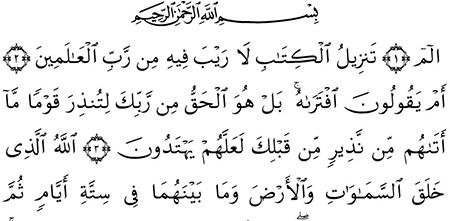 بِسْمِ ٱللَّهِ ٱلرَّحْمَٰنِ ٱلرَّحِيمِ
الٓمٓ ﴿١﴾ تَنزِيلُ ٱلْكِتَٰبِ لَا رَيْبَ فِيهِ مِن رَّبِّ ٱلْعَٰلَمِينَ ﴿٢﴾
أَمْ يَقُولُونَ ٱفْتَرَىٰهُ ۚ بَلْ هُوَ ٱلْحَقُّ مِن رَّبِّكَ لِتُنذِرَ قَوْمًا مَّآ
أَتَىٰهُم مِّن نَّذِيرٍ مِّن قَبْلِكَ لَعَلَّهُمْ يَهْتَدُونَ ﴿٣﴾ ٱللَّهُ ٱلَّذِى
خَلَقَ ٱلسَّمَٰوَٰتِ وَٱلْأَرْضَ وَمَا بَيْنَهُمَا فِى سِتَّةِ أَيَّامٍ ثُمَّ